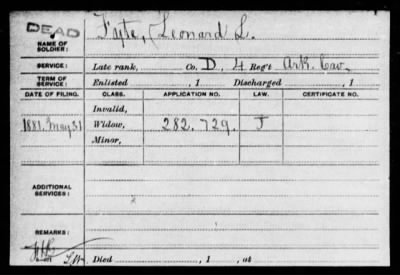 DEAD
NAME OF SOLDIER: Fyte, Leonard L.
SERVICE: Late rank, Co. D, 4 Reg't Ark. Cav.
TERM OF SERVICE: Enlisted , 1 Discharged , 1
DATE OF FILING. CLASS. APPLICATION NO. LAW. CERTIFICATE NO.
Invalid,
1881, May 31 Widow, 282.729. J
Minor,
ADDITIONAL SERVICES:
REMARKS:
Died , 1 , at